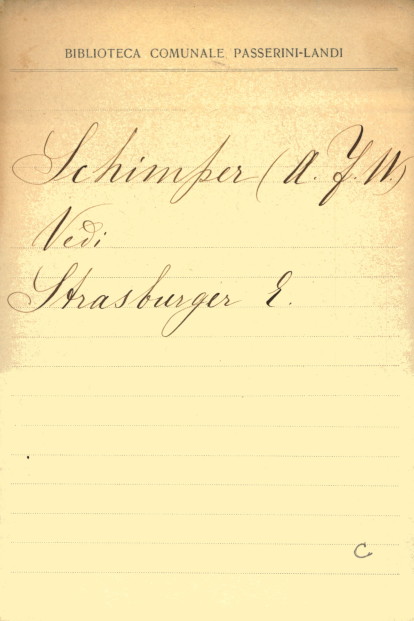 BIBLIOTECA COMUNALE PASSERINI-LANDI
Schimper (A. F. W.)
Vedi
Strasburger E.
C